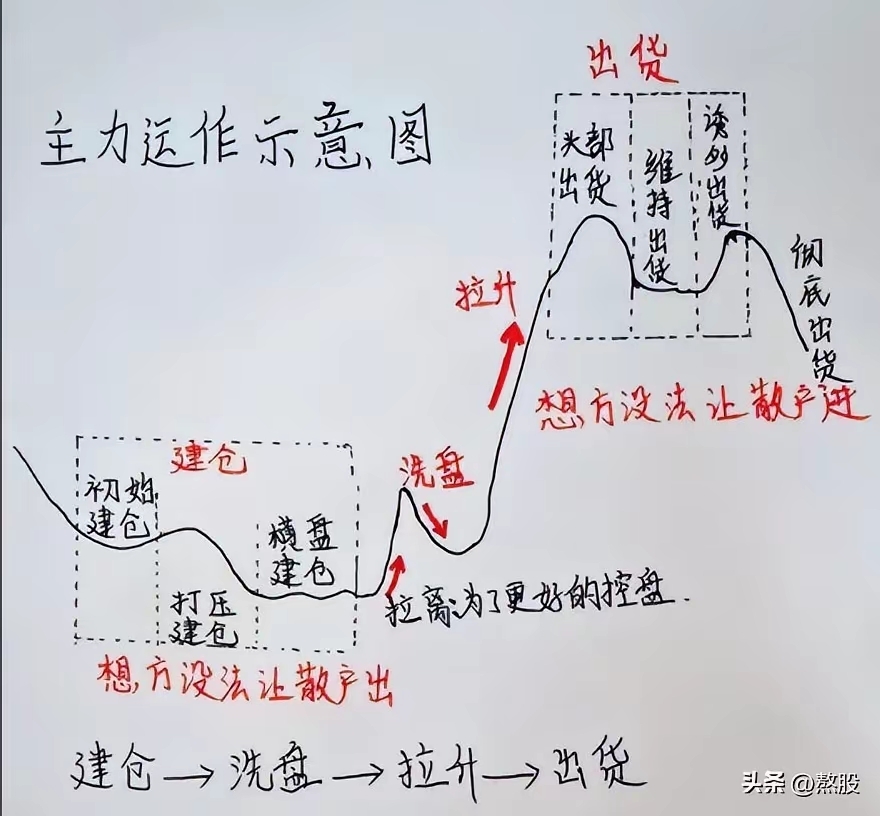 主力运作示意图
出货
头部
出货
维持出货
诱多出货
彻底出货
拉升
想方设法让散户进
建仓
初始
建仓
打压
建仓
横盘
建仓
洗盘
拉离为了更好的控盘.
想方设法让散户出
建仓→洗盘→拉升→出货
头条 @熬股